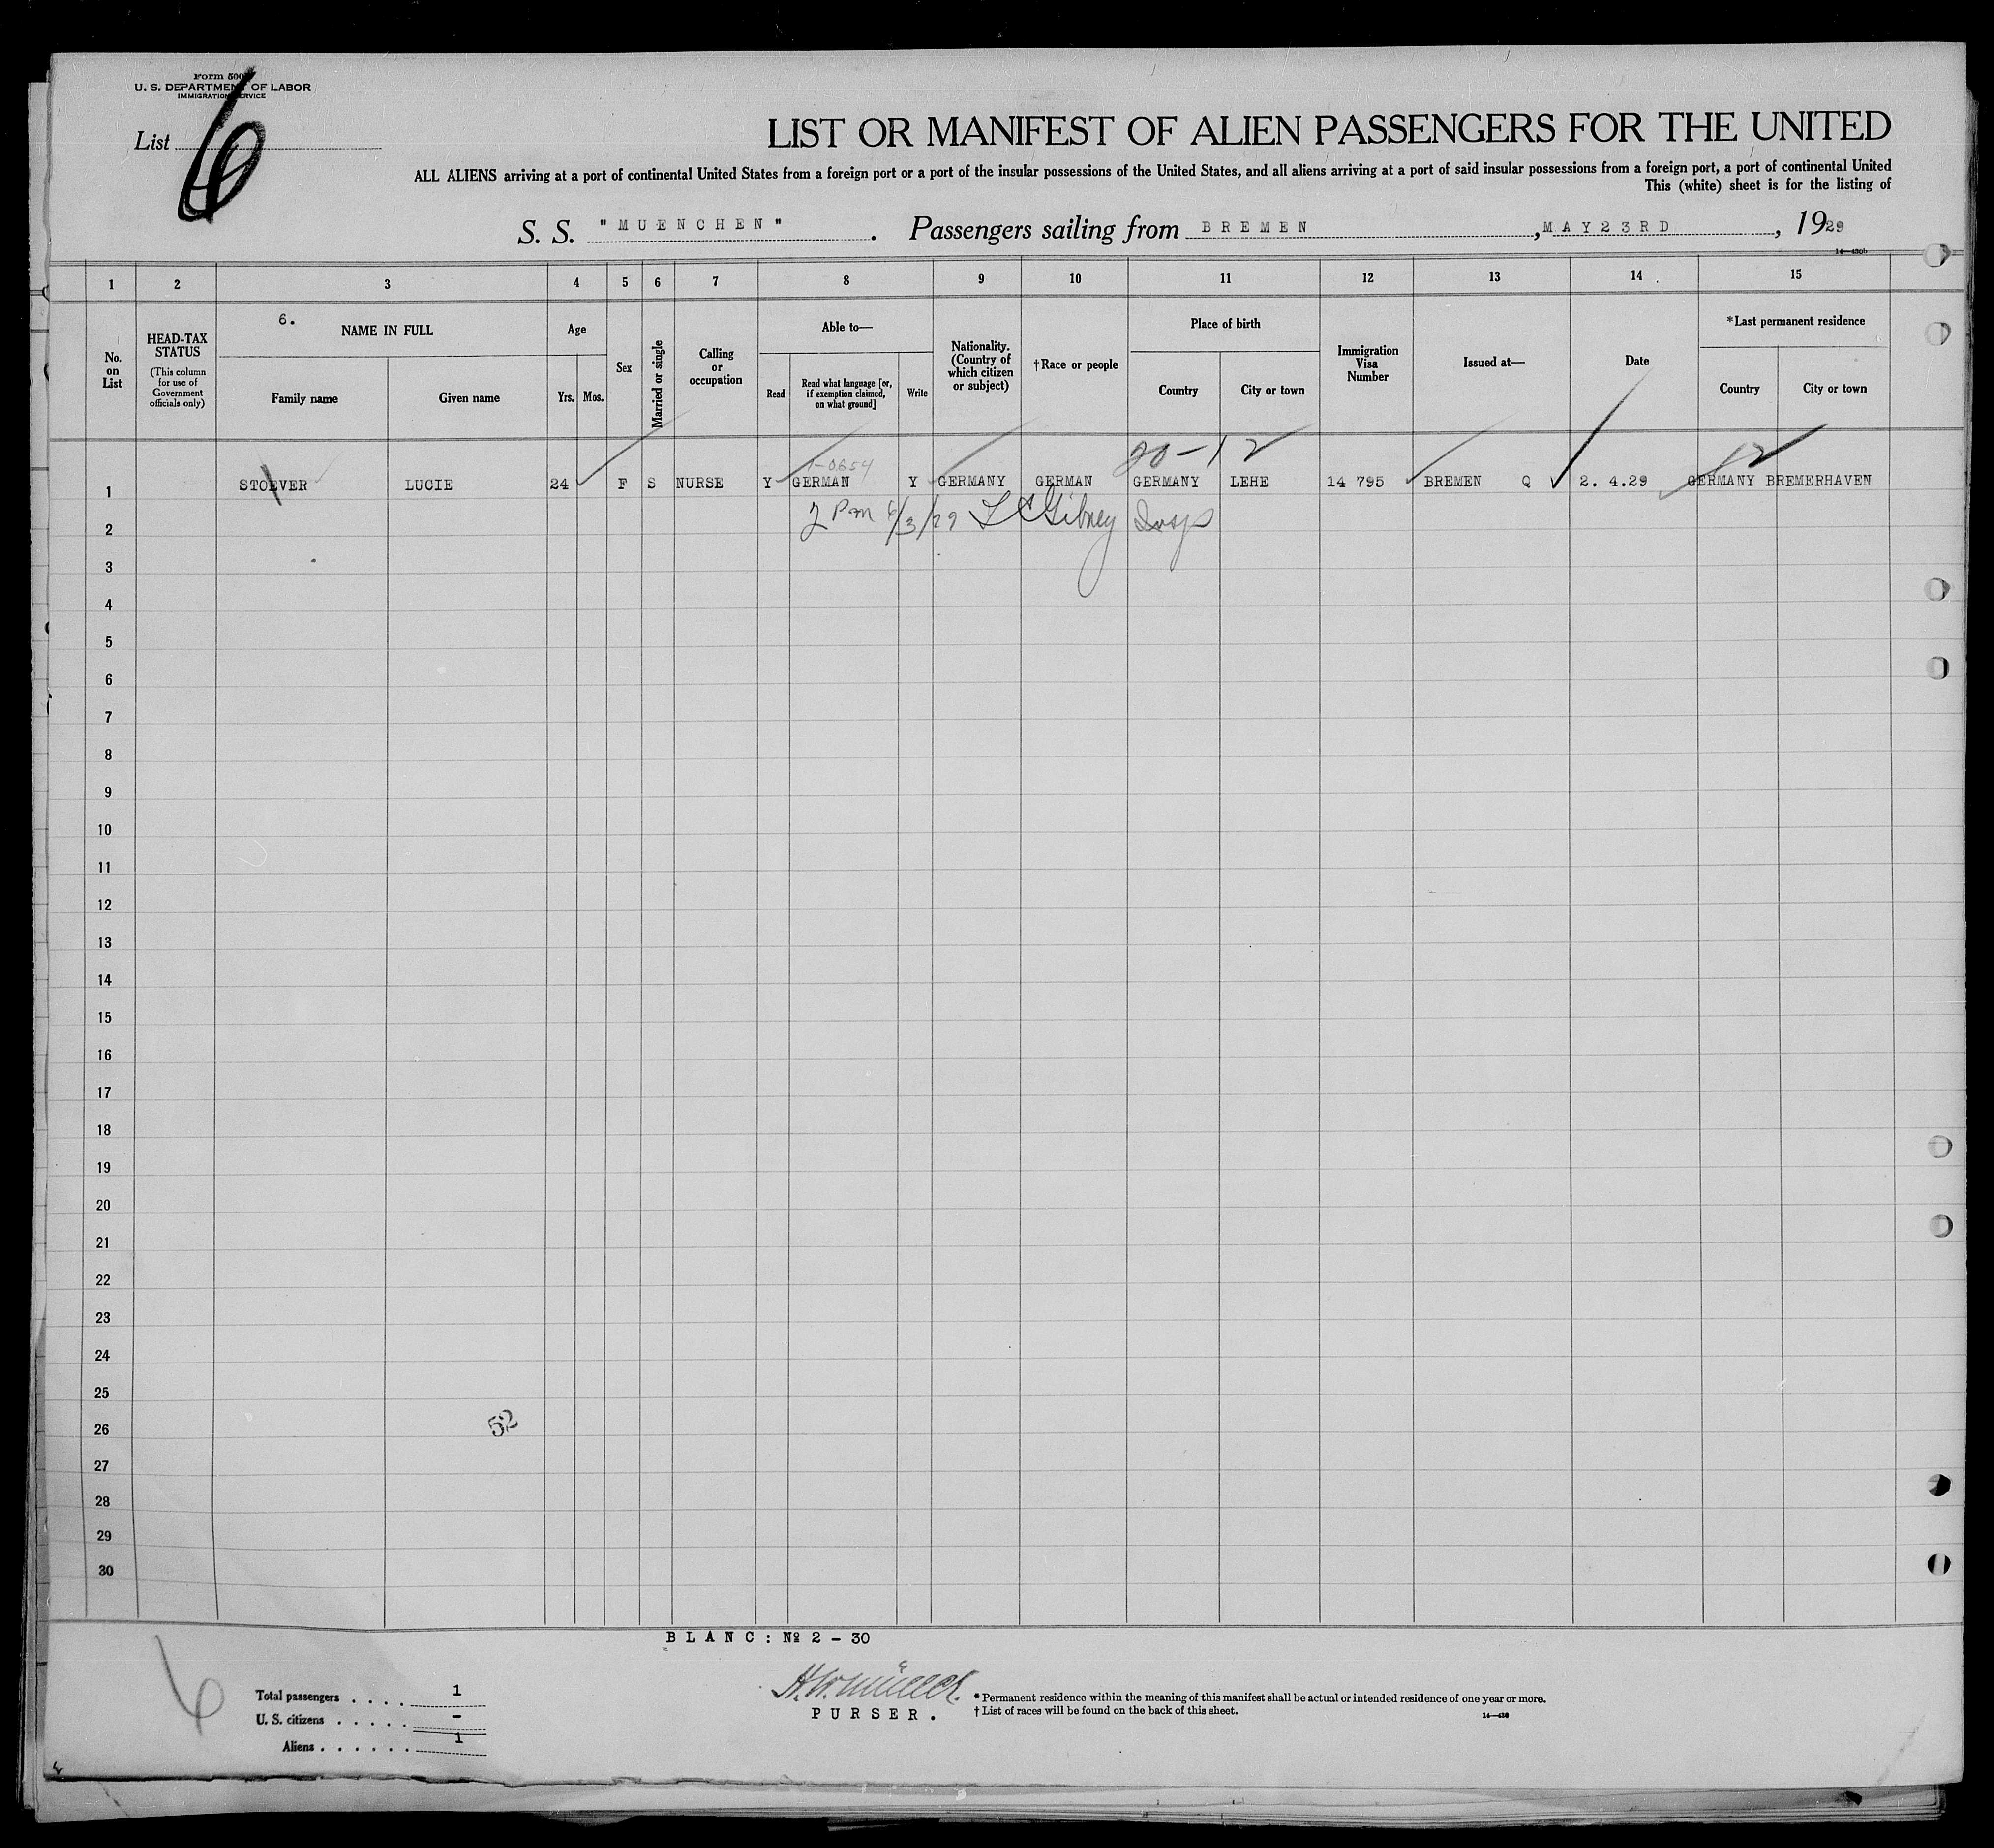 Form 500
U. S. DEPARTMENT OF LABOR
IMMIGRATION SERVICE
List 6
LIST OR MANIFEST OF ALIEN PASSENGERS FOR THE UNITED
ALL ALIENS arriving at a port of continental United States from a foreign port or a port of the insular possessions of the United States, and all aliens arriving at a port of said insular possessions from a foreign port, a port of continental United
This (white) sheet is for the listing of
S. S. "MUENCHEN". Passengers sailing from BREMEN, MAY 23RD, 1929
14—430b
1 2 3 4 5 6 7 8 9 10 11 12 13 14 15
No. on List
HEAD-TAX STATUS
(This column for use of Government officials only)
6. NAME IN FULL
Family name Given name
Age
Yrs. Mos.
Sex
Married or single
Calling or occupation
Able to—
Read
Read what language [or, if exemption claimed, on what ground]
Write
Nationality. (Country of which citizen or subject)
†Race or people
Place of birth
Country City or town
Immigration Visa Number
Issued at—
Date
*Last permanent residence
Country City or town
1-0654 20-12 12
1 STOEVER LUCIE 24 F S NURSE Y GERMAN Y GERMANY GERMAN GERMANY LEHE 14 795 BREMEN Q 2. 4.29 GERMANY BREMERHAVEN
2 2 Pm 6/3/29 Gibney Insp
3
4
5
6
7
8
9
10
11
12
13
14
15
16
17
18
19
20
21
22
23
24
25
26 52
27
28
29
30
BLANC: № 2 - 30
6
Total passengers . . . . 1
U. S. citizens . . . . . -
Aliens . . . . . . 1
PURSER.
* Permanent residence within the meaning of this manifest shall be actual or intended residence of one year or more.
† List of races will be found on the back of this sheet.
14—430